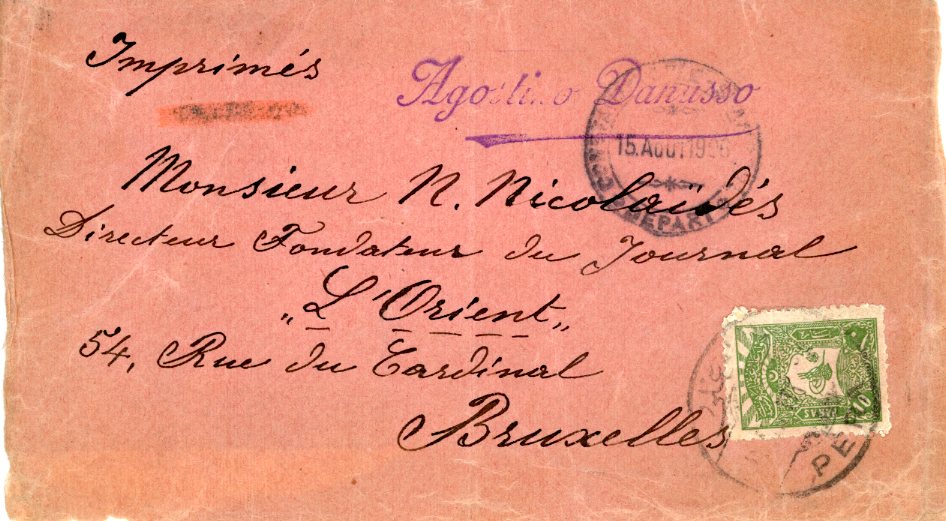 Imprimés
Agostino Danusso
15. AOUT 1906
DEPART
Monsieur N. Nicolaïdès
Directeur Fondateur du Journal
„L'Orient„
54, Rue du Cardinal
Bruxelles
10
PARAS
PERA